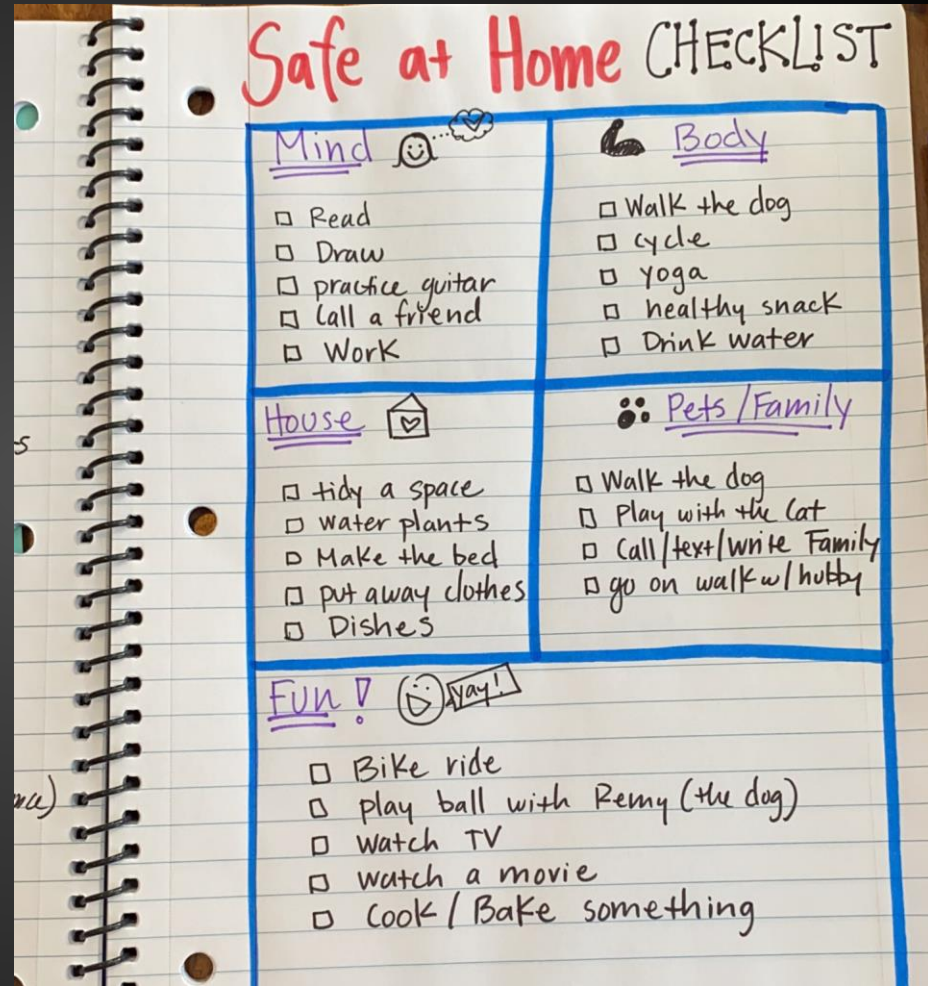 Safe at Home CHECKLIST
Mind
Read
Draw
practice guitar
Call a friend
Work
Body
Walk the dog
cycle
yoga
healthy snack
Drink water
House
tidy a space
water plants
Make the bed
put away clothes
Dishes
Pets/Family
Walk the dog
Play with the Cat
Call/text/write Family
go on walk w/hubby
Fun!
yay!
Bike ride
play ball with Remy (the dog)
Watch TV
watch a movie
Cook/Bake something